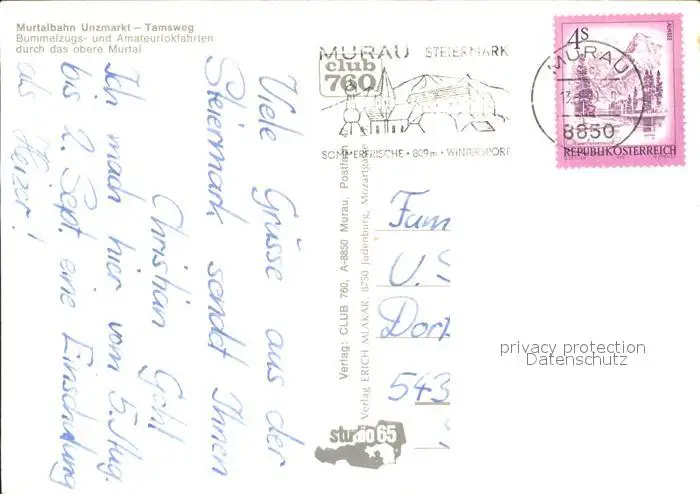 Murtalbahn Unzmarkt – Tamsweg
Bummelzugs- und Amateurlokfahrten
durch das obere Murtal
MURAU STEIERMARK
club
760
SOMMERFRISCHE • 809m • WINTERSPORT
4S
ALMSEE
REPUBLIK ÖSTERREICH
MURAU
8850
Viele Grüsse aus der
Steiermark sendet Ihnen
Christian Gohl
Ich mach hier vom 5. Aug.
bis 2. Sept. eine Einschulung
als Heizer!
Verlag: CLUB 760, A-8850 Murau, Postfach
Verlag ERICH MLAKAR, 8750 Judenburg, Mozartgasse
Fam
U.
Dorf
543
studio 65
privacy protection
Datenschutz